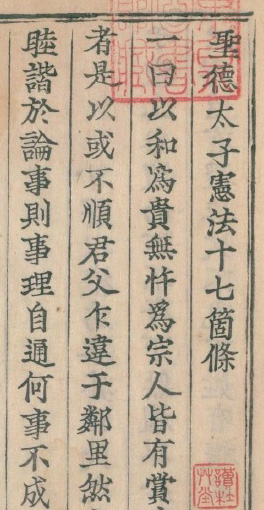 聖德太子憲法十七箇條
一曰以和爲貴無忤爲宗人皆有賞
者是以或不順君父乍違于鄰里然
睦諧於論事則事理自通何事不成